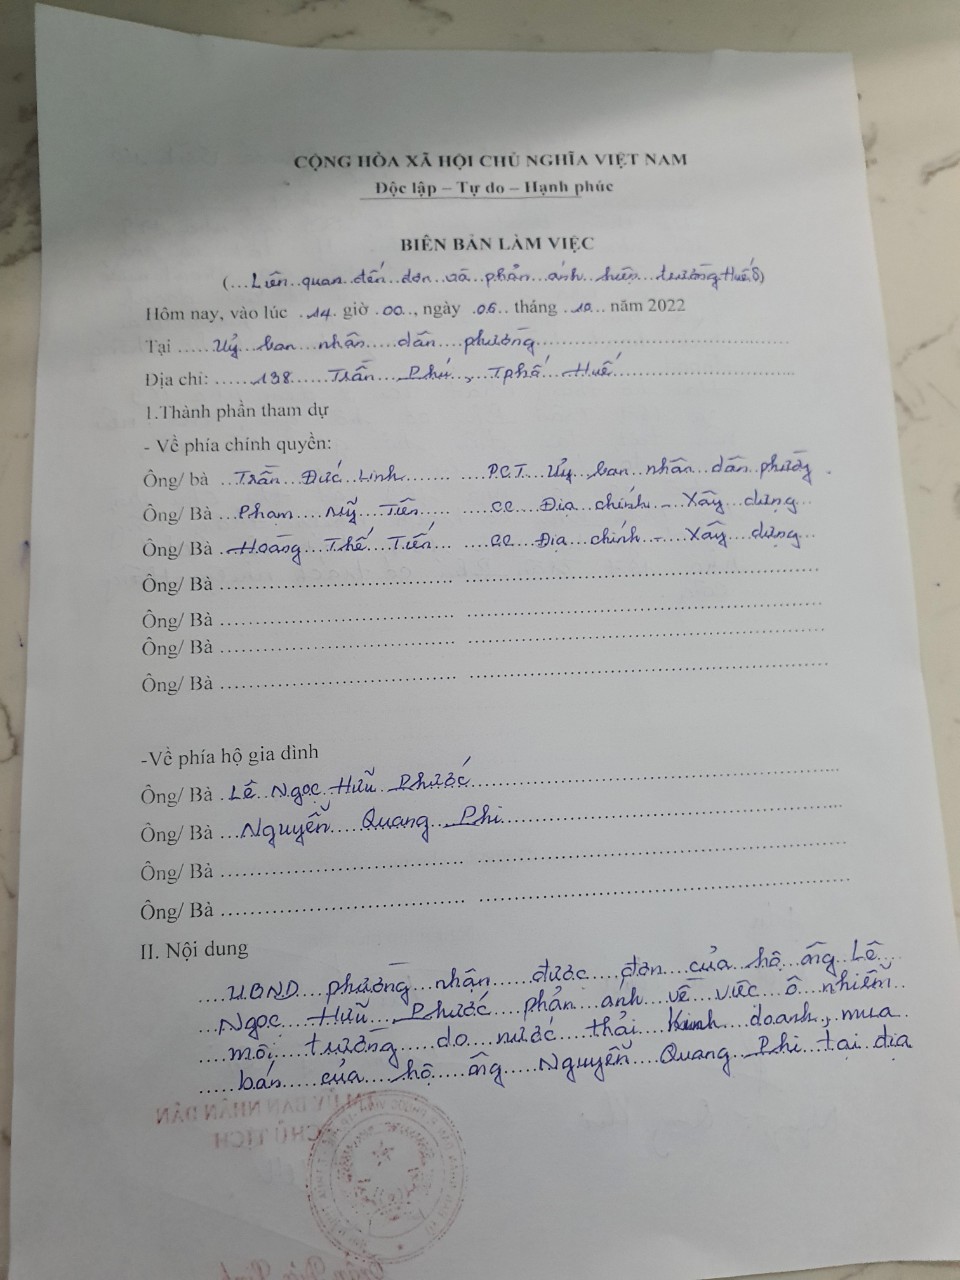 CỘNG HÒA XÃ HỘI CHỦ NGHĨA VIỆT NAM
Độc lập – Tự do – Hạnh phúc
BIÊN BẢN LÀM VIỆC
(...Liên quan đến đơn phản ánh hiện trường Huế)
Hôm nay, vào lúc .14. giờ .00.., ngày .06.. tháng .10... năm 2022
Tại .....Uỷ ban nhân dân phường
Địa chỉ: ......138..... Trần Phú, Tphố Huế
1.Thành phần tham dự
- Về phía chính quyền:
Ông/ bà ..Trần Đức Linh ...... P.C.T Uỷ ban nhân dân phường
Ông/ Bà ..Phạm Mỹ Tiên ...... CC Địa chính - Xây dựng
Ông/ Bà .Hoàng Thế Tiến ...... CC Địa chính - Xây dựng
Ông/ Bà
Ông/ Bà
Ông/ Bà
Ông/ Bà
-Về phía hộ gia đình
Ông/ Bà .Lê Ngọc Hữu Phước
Ông/ Bà ...Nguyễn Quang Phi
Ông/ Bà
Ông/ Bà
II. Nội dung
....UBND phường nhận được đơn của hộ ông Lê
Ngọc Hữu Phước phản ánh về việc ô nhiễm
môi trường do nước thải Kinh doanh, mua
bán của hộ ông Nguyễn Quang Phi tại địa
TM ỦY BAN NHÂN DÂN
CHỦ TỊCH
Trần Đức Linh